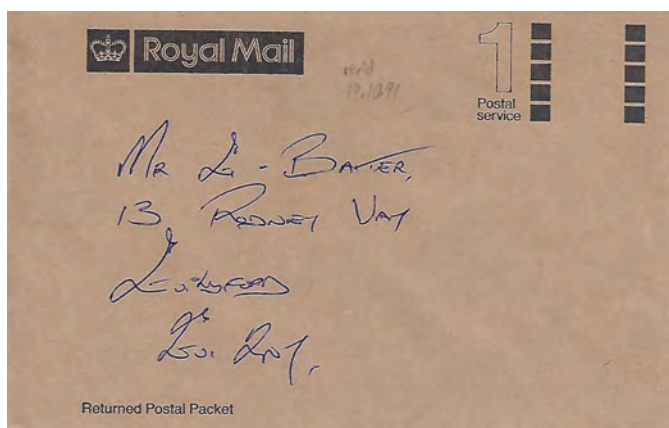 Royal Mail
1
Postal
service
MR G. BAKER,
13, RODNEY WAY
GUILDFORD
GU1 2NY.
Returned Postal Packet